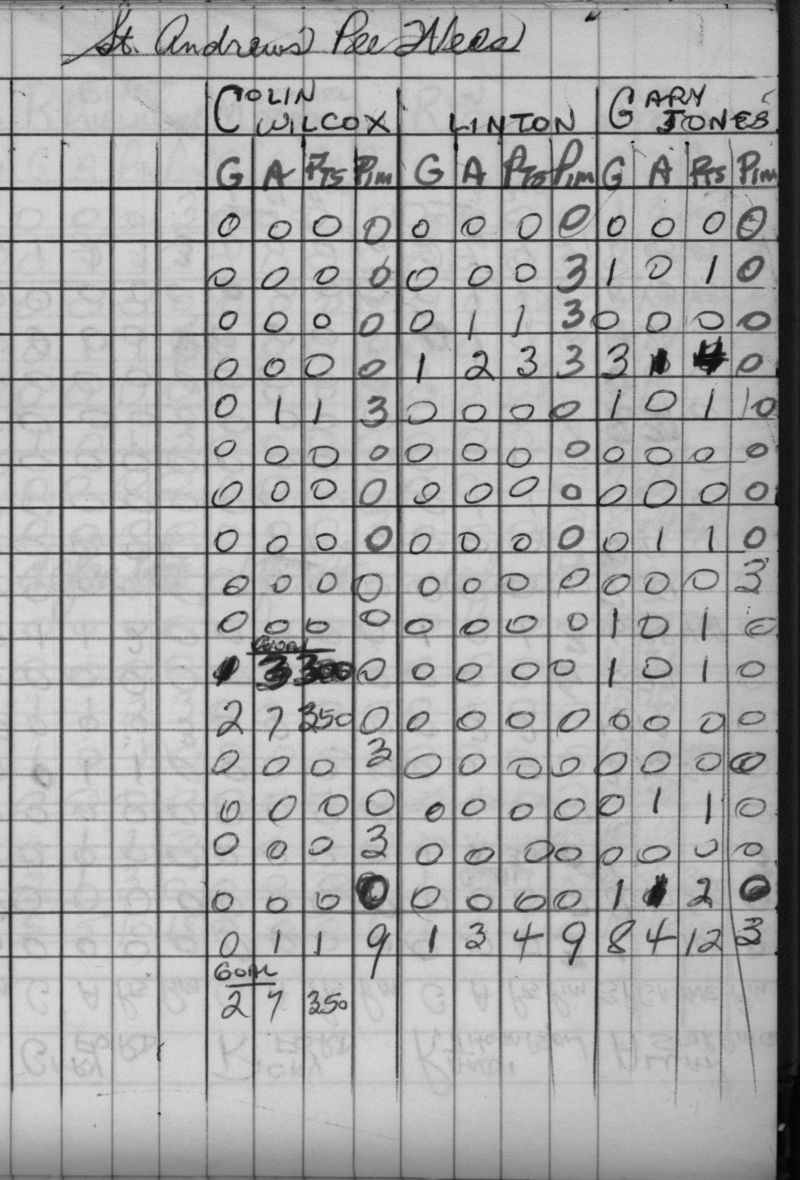 St. Andrews' Pee Wees
COLIN WILCOX LINTON GARY JONES
G A PTS PIM G A PTS PIM G A PTS PIM
0 0 0 0 0 0 0 0 0 0 0 0
0 0 0 0 0 0 0 3 1 0 1 0
0 0 0 0 0 1 1 3 0 0 0 0
0 0 0 0 1 2 3 3 3 1 4 0
0 1 1 3 0 0 0 0 1 0 1 0
0 0 0 0 0 0 0 0 0 0 0 0
0 0 0 0 0 0 0 0 0 0 0 0
0 0 0 0 0 0 0 0 0 1 1 0
0 0 0 0 0 0 0 0 0 0 0 3
0 0 0 0 0 0 0 0 1 0 1 0
Goal
1 3 300 0 0 0 0 0 1 0 1 0
2 7 350 0 0 0 0 0 0 0 0 0
0 0 0 3 0 0 0 0 0 0 0 0
0 0 0 0 0 0 0 0 0 1 1 0
0 0 0 3 0 0 0 0 0 0 0 0
0 0 0 0 0 0 0 0 1 1 2 0
0 1 1 9 1 3 4 9 8 4 12 3
GOAL
2 7 350